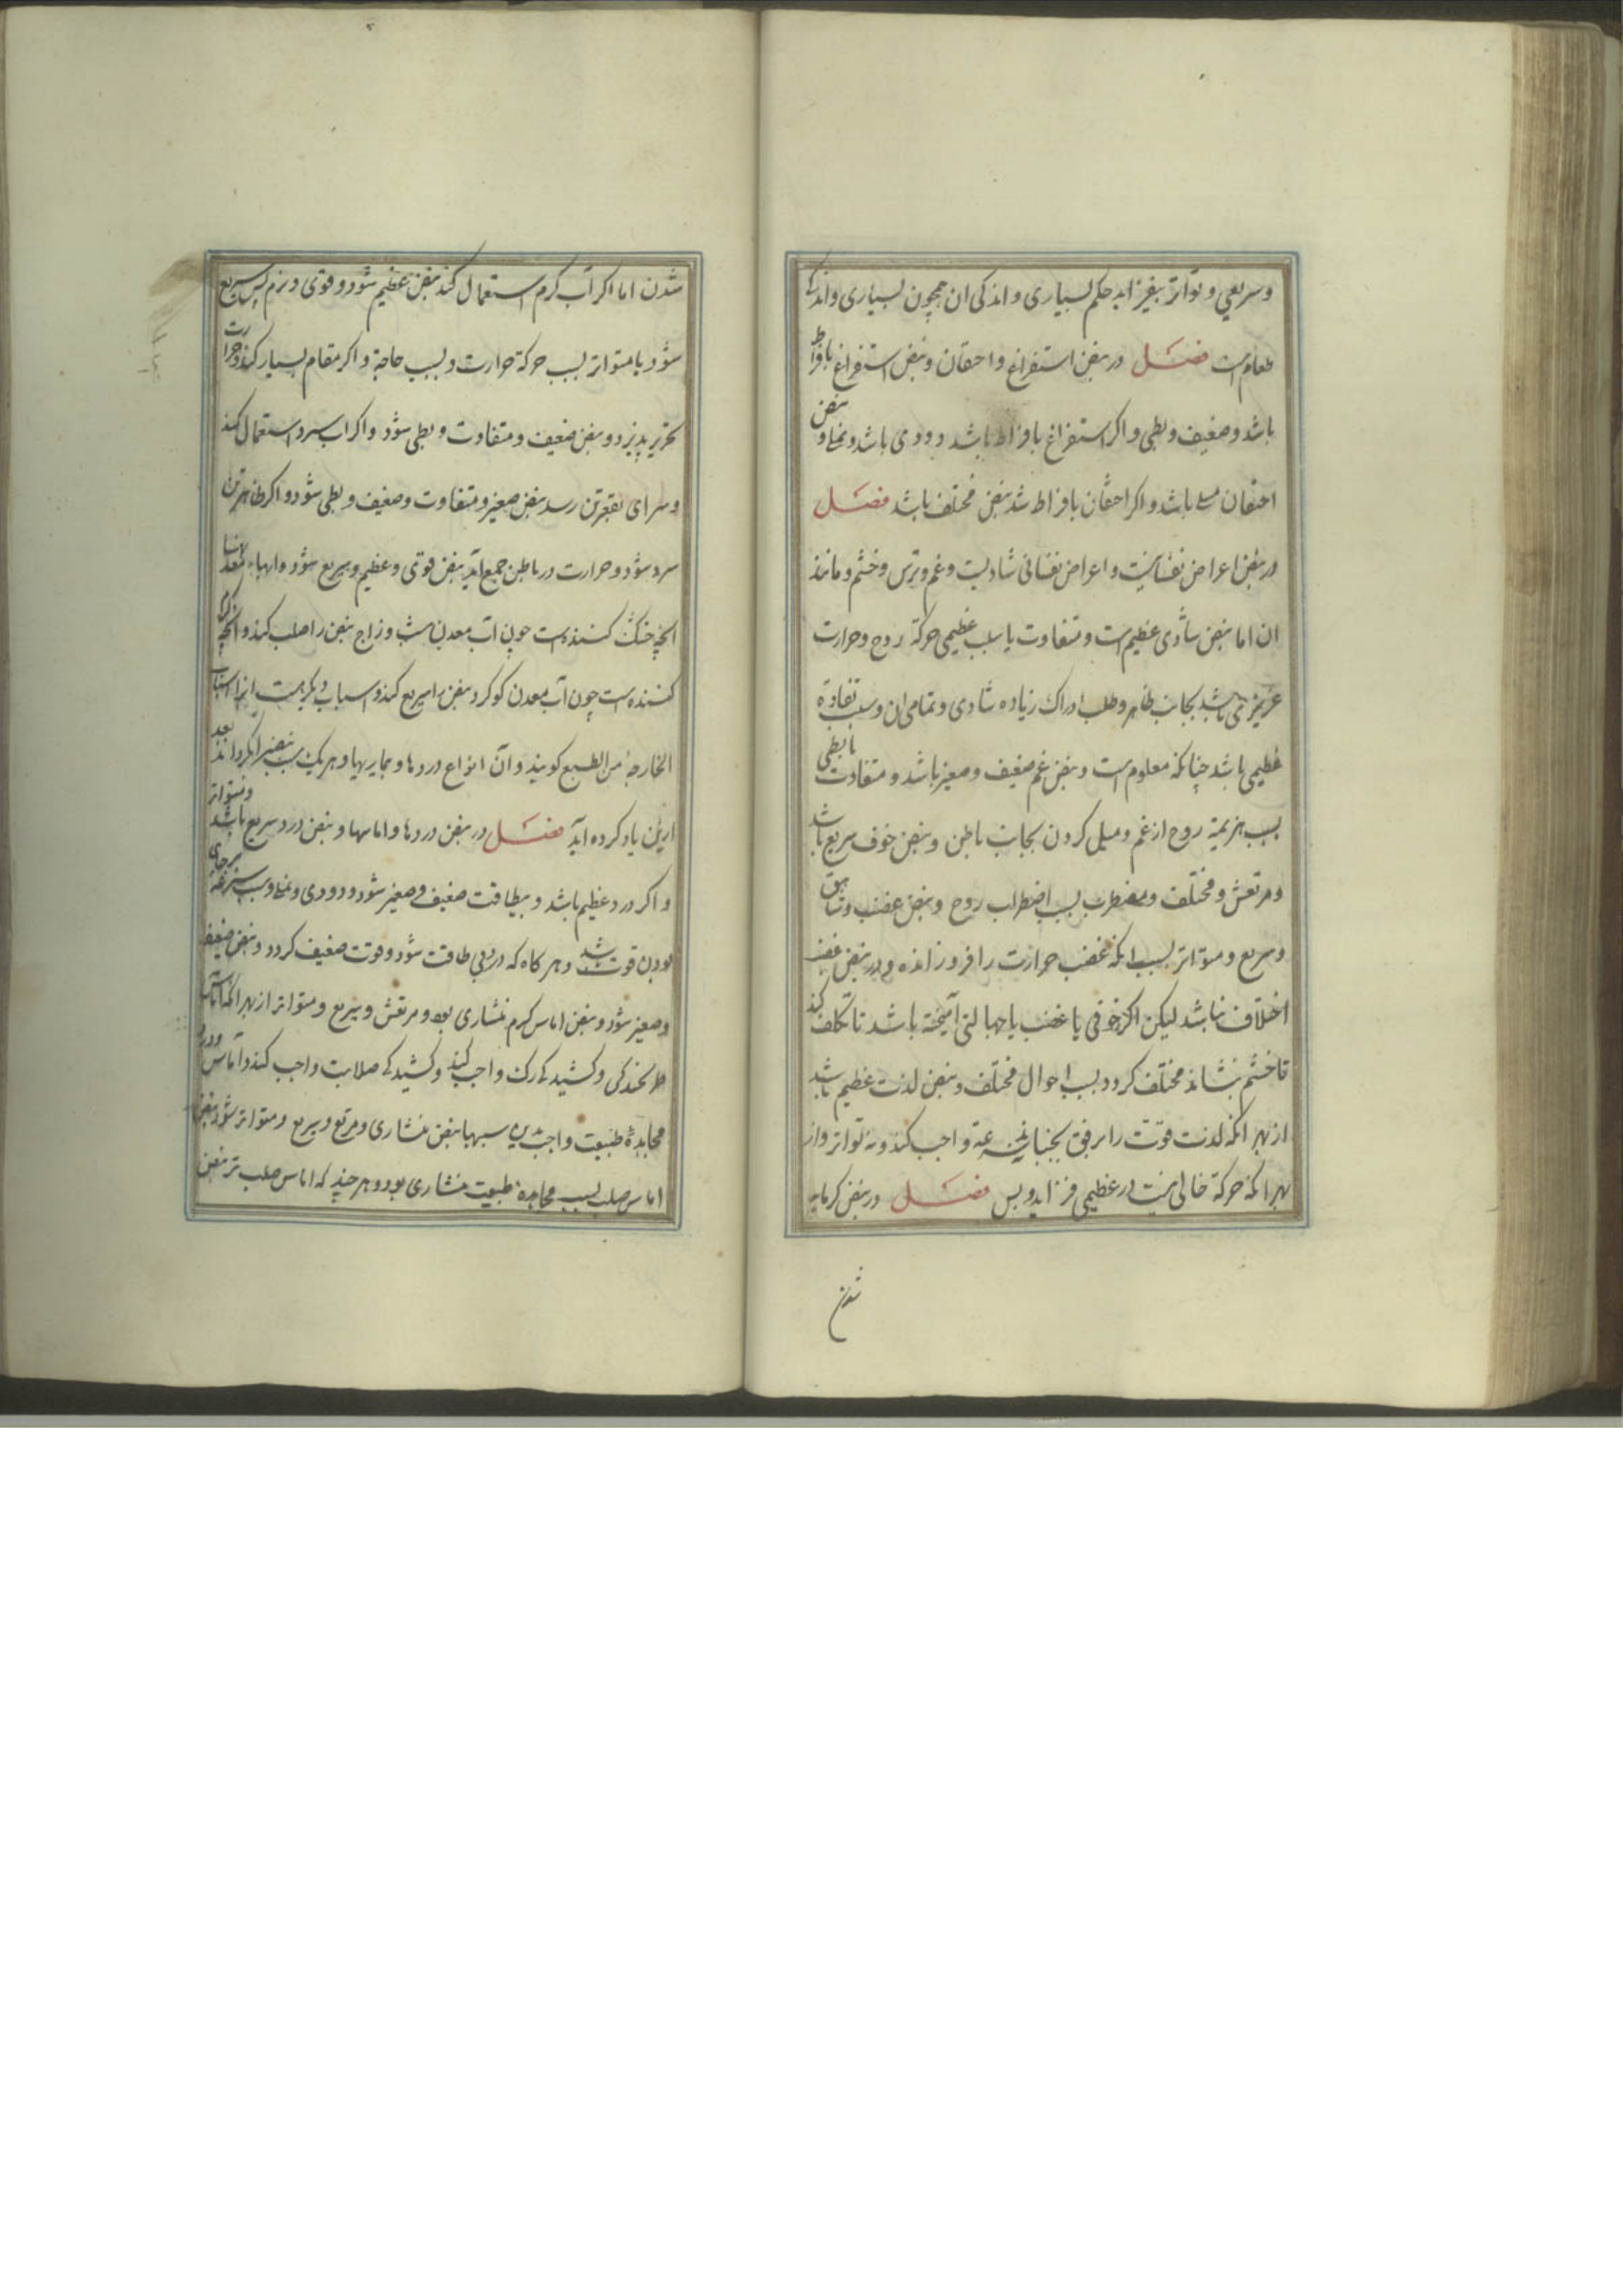 وسریعی و تواتر بیفزاید حکم بسیاری و اندکی ان همچون بسیاری و اندکی
طعام است فصل در نبض استفراغ و احتقان و نبض استفراغ بافراط
باشد وضعیف و بطی و اکر استفراغ بافراط باشد دودی باشد و نملی و نبض
احتقان ممتلی باشد و اکر احتقان بافراط شد نبض مختلف باشد فصل
در نبض اعراض نفسانیت و اعراض نفسانی شادیست و غم و ترس و خشم و مانند
ان اما نبض شادی عظیم است و متفاوت یا سبب عظیمی حرکة روح و حرارت
غریزی می باشد بجانب ظاهر و طلب ادراک زیاده شادی و تمامی ان و سبب تفاوة
عظیمی باشد چنانکه معلوم است و نبض غم ضعیف و صغیر باشد و متفاوت یا بطی
بسبب هزیمة روح از غم و میل کردن بجانب باطن و نبض خوف سریع باشد
و مرتعش و مختلف و مضطرب بسبب اضطراب روح و نبض غضب و شاهق
و سریع و متواتر بسبب انکه غضب حرارت را فروزانده و در نبض غضب
اختلاف نباشد لیکن اکر خوفی یا غضب یا خجالتی آمیخته باشد تا تکلف کند
تا خشم بنشاند مختلف کردد بسبب احوال مختلف و نبض لذت عظیم باشد
از بهر انکه لذت قوّت را برفق بجنباند نه سرعة واجب کند و نه تواتر و از
بهر انکه حرکة خالی نیست در عظیمی فزاید و بس فصل در نبض کرمابه
شدن
شدن اما اکر آب کرم استعمال کند نبض عظیم شود و قوی و نرم پس سریع
شود یا متواتر بسبب حرکة حرارت و بسبب حاجة و اکر مقام بسیار کند و حرارت
تحریر پذیرد و نبض ضعیف و متفاوت و بطی شود و اکر اب سرد استعمال کند
و سرمای بقعر تن رسد نبض صغیر و متفاوت و ضعیف و بطی شود و اکر ظاهر تن
سرد شود و حرارت در باطن جمع آید نبض قوی و عظیم و سریع شود و ابهاء معدنها
انچه خشک کننده است چون آب معدن شب و زاج نبض را صلب کند و انچه کرم
کننده است چون آب معدن کوکرد نبض را سریع کند و اسباب دیکر هست انرا اسباب
الخارجة من الطبع کویند و آن انواع دردها و بیماریها و هر یک بسبب نبض را بکرداند بعد
ازین یاد کرده آید فصل در نبض دردها و اماسها و نبض درد سریع باشد و متواتر
و اکر درد عظیم باشد و بیطاقت ضعیف و صغیر شود و دودی و نملی و سبب سرعة برجای
بودن قوت باشد و هر کاه که در بی طاقت شود و قوت ضعیف کردد و نبض ضعیف
و صغیر شود و نبض اماس کرم منشاری بود و مرتعش و سریع و متواتر از بهر انکه آماس
کشیدکی رک واجب کند و کشیدکی صلابت واجب کند و آماس و درد
مجاهدۀ طبیعت واجب بدین سببها نبض منشاری و مرتعش و سریع و متواتر شود نبض
اماس صلب بسبب مجاهدۀ طبیعت منشاری بود و هر چند که اماس صلب تر نبض